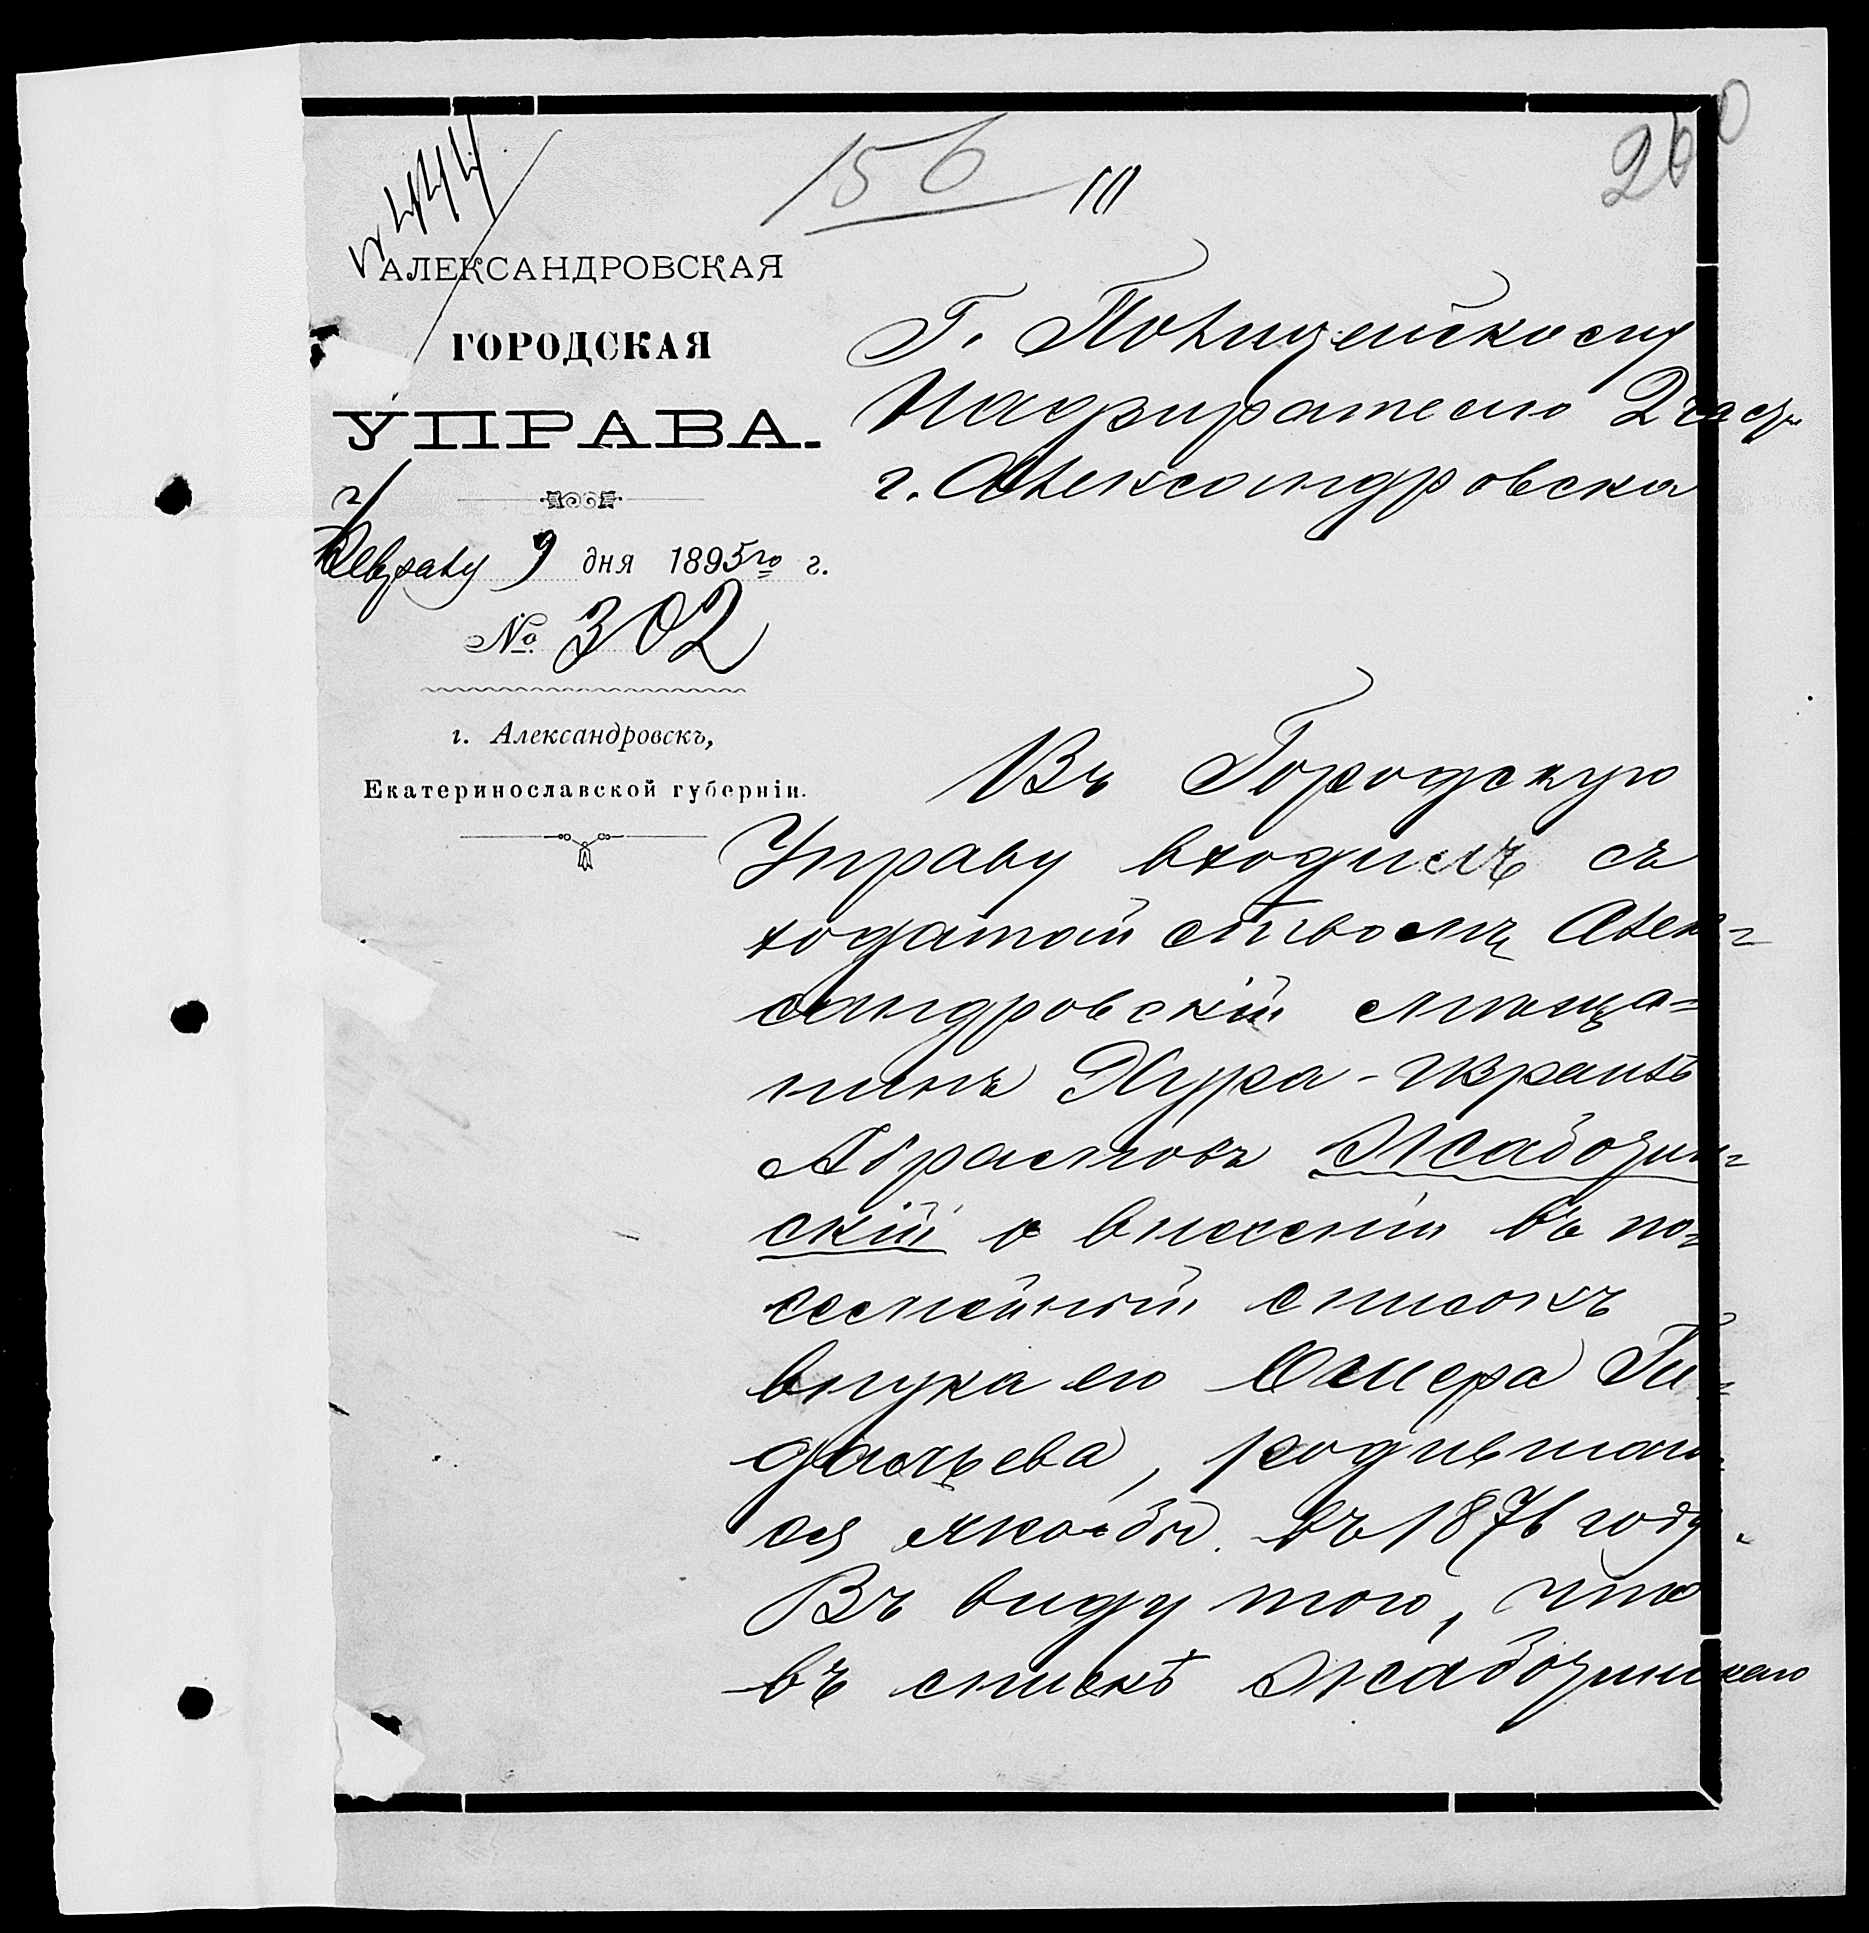 156
260
АЛЕКСАНДРОВСКАЯ
ГОРОДСКАЯ
УПРАВА.
Февраля 9 дня 1895го г.
№ 302
г. Александровскъ,
Екатеринославской губерніи.
Г. Полицейскому
Надзирателю 2 части
г. Александровска
Въ Городскую
Управу входилъ съ
ходатайствомъ Алек-
сандровскій мѣща-
нинъ Шура-Израиль
Абрамовъ Жабозин-
скій о внесеніи въ по-
семейный списокъ
внука его Ошера Ги-
дальева, родившаго-
ся якобы въ 1876 году.
Въ виду того, что
въ спискѣ Жабозинскаго